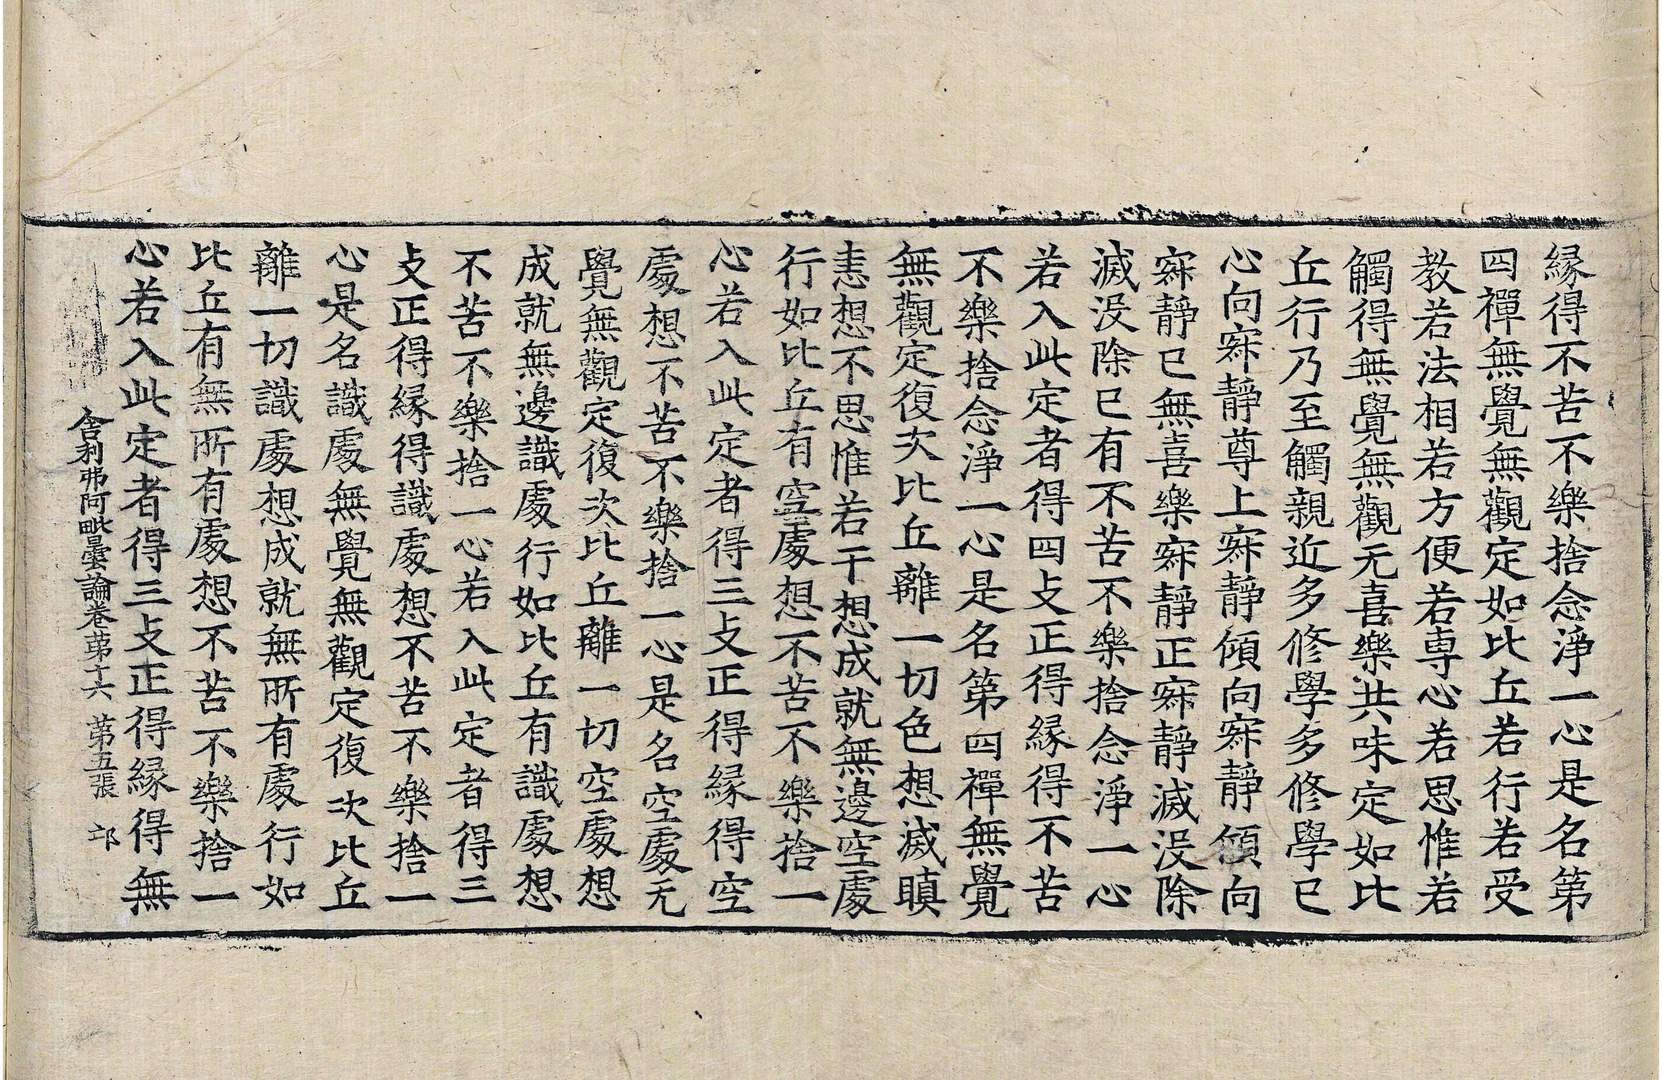 縁得不苦不樂捨念淨一心是名第
四禪無覺無觀定如比丘若行若受
教若法相若方便若專心若思惟若
觸得無覺無觀无喜樂共味定如比
丘行乃至觸親近多修學多修學已
心向寂靜尊上寂靜傾向寂靜傾向
寂靜已無喜樂寂靜正寂靜滅没除
滅没除已有不苦不樂捨念淨一心
若入此定者得四攴正得縁得不苦
不樂捨念淨一心是名第四禪無覺
無觀定復次比丘離一切色想滅瞋
恚想不思惟若干想成就無邊空處
行如比丘有空處想不苦不樂捨一
心若入此定者得三攴正得縁得空
處想不苦不樂捨一心是名空處无
覺無觀定復次比丘離一切空處想
成就無邊識處行如比丘有識處想
不苦不樂捨一心若入此定者得三
攴正得縁得識處想不苦不樂捨一
心是名識處無覺無觀定復次比丘
離一切識處想成就無所有處行如
比丘有無所有處想不苦不樂捨一
心若入此定者得三攴正得縁得無
舍利弗阿毗曇論卷苐十六 第五張 邙